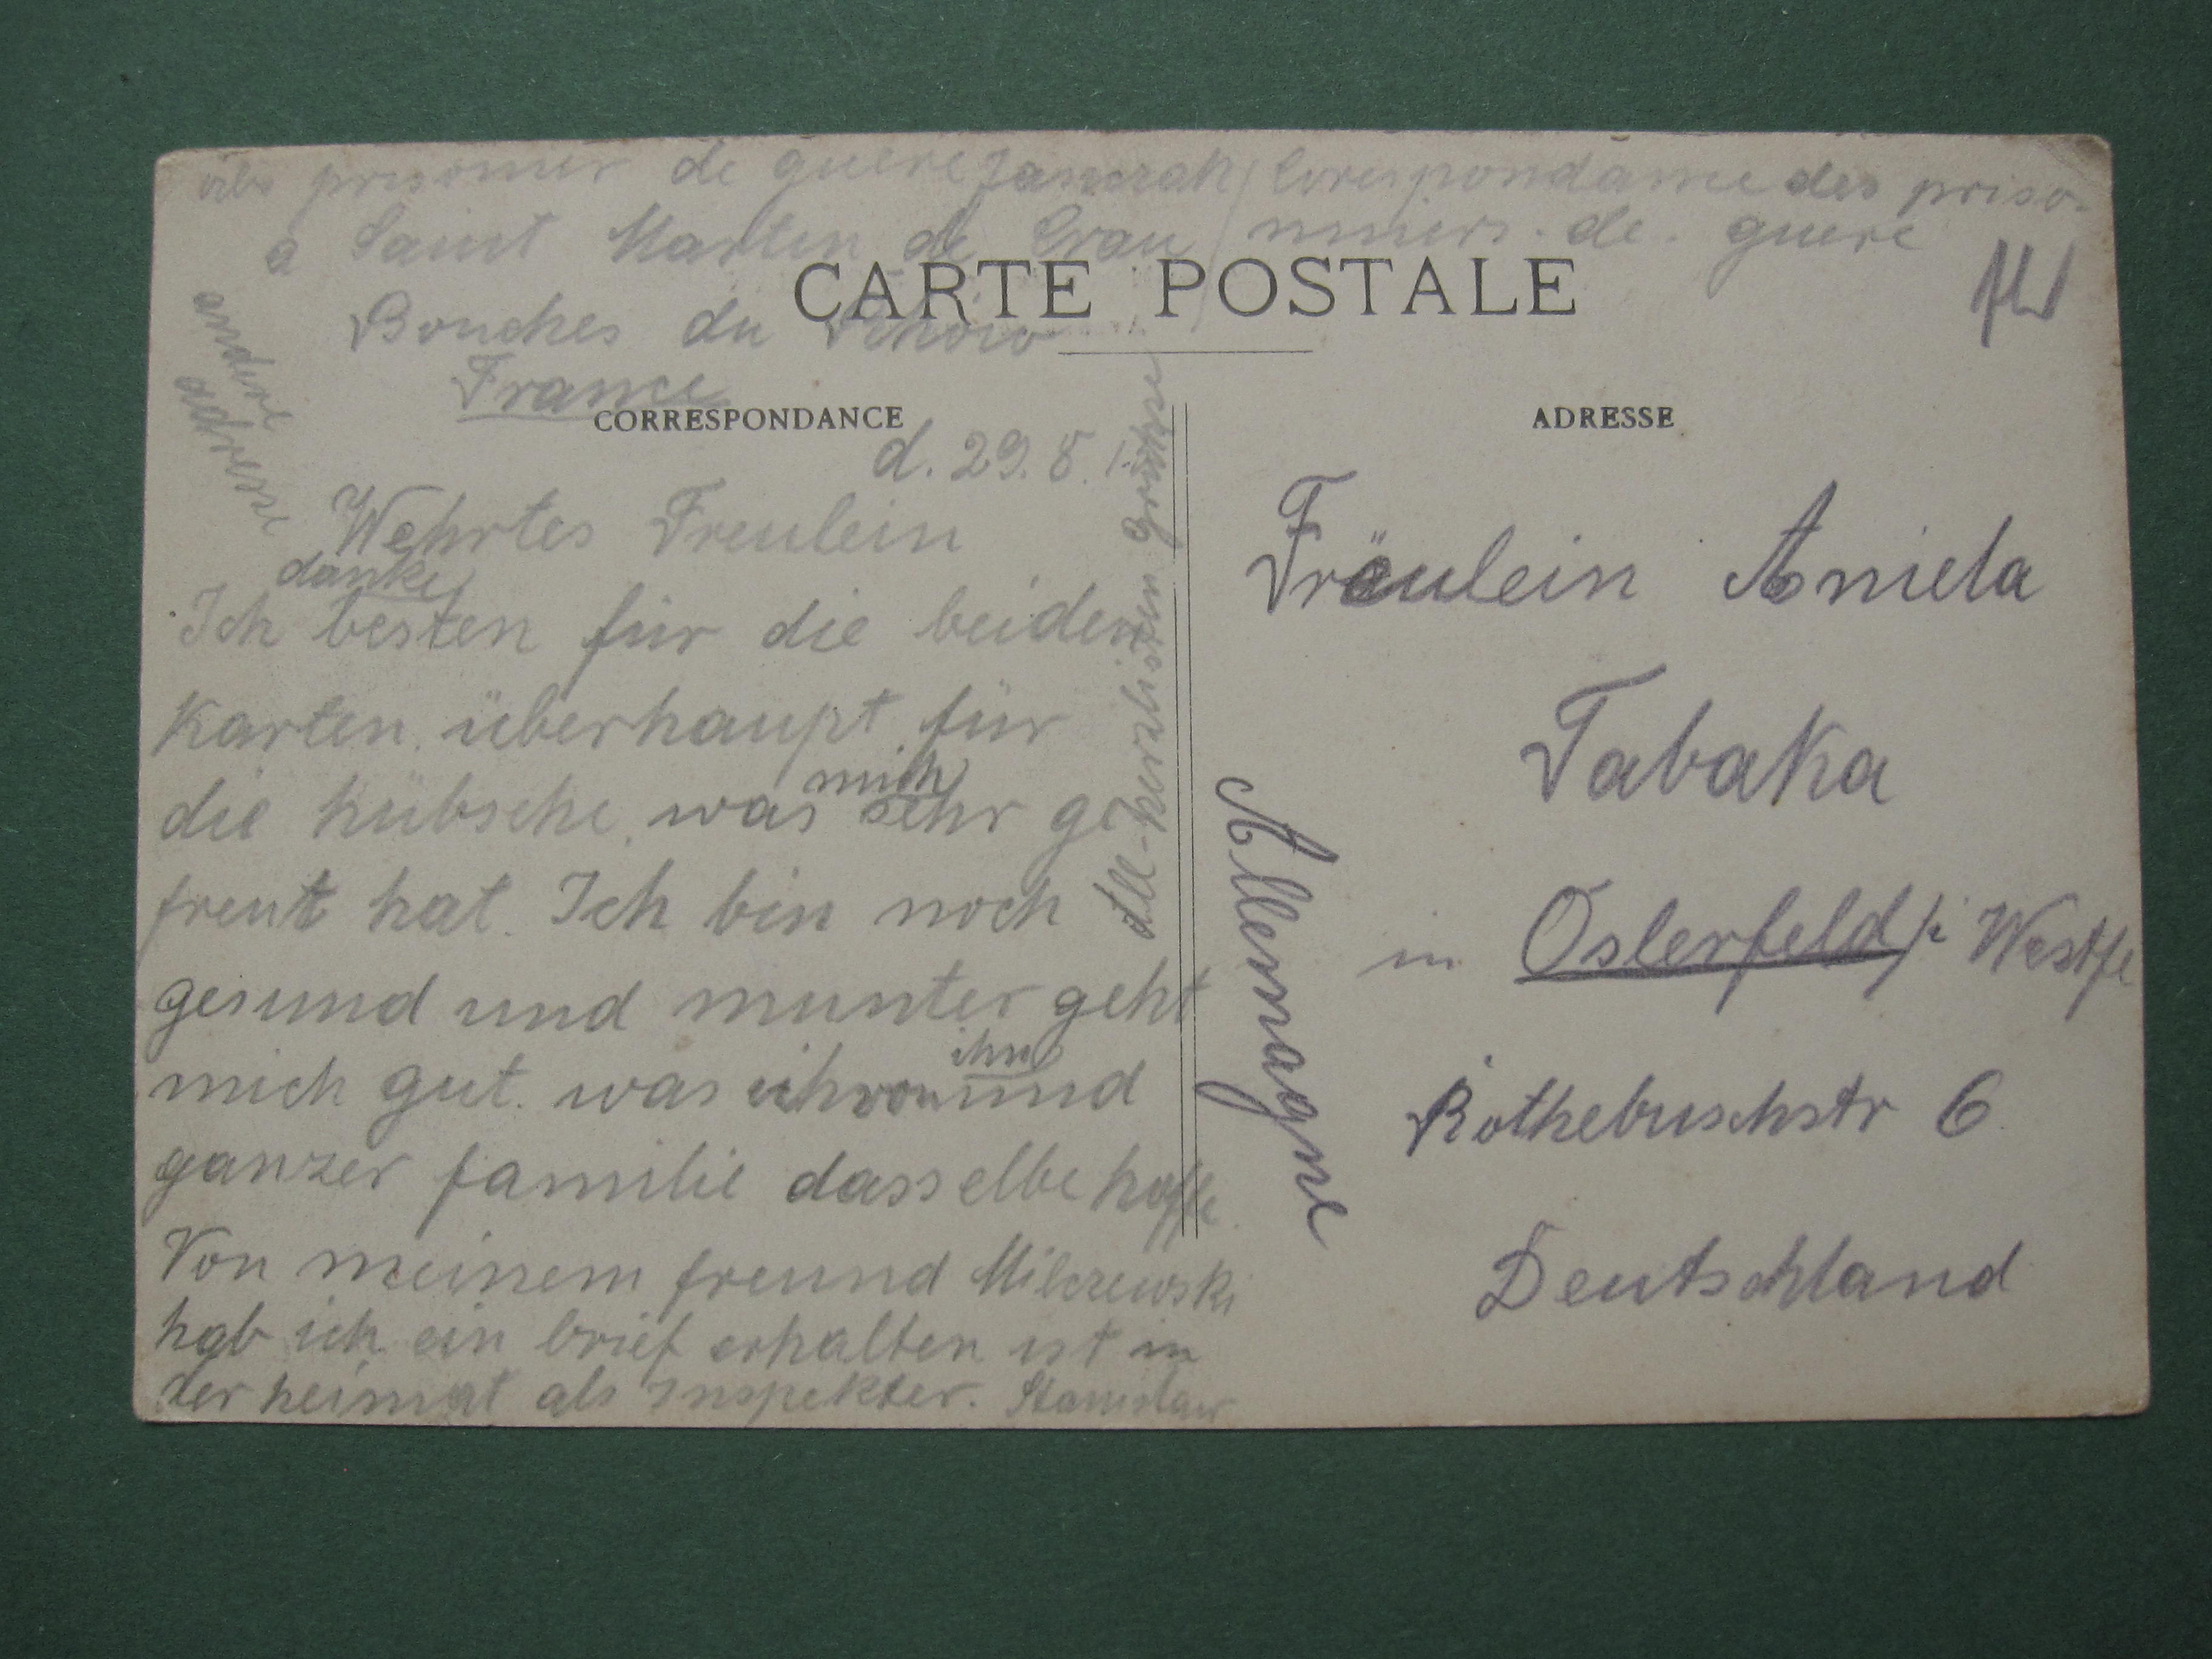 prisonnir de guere Janszak / Corespondance des priso-
à Saint Martin de Crau / nniers. de. guere
CARTE POSTALE
Bouches du
France
andere
adresse
CORRESPONDANCE
ADRESSE
d. 29. 8. 1
Wehrtes Freulein
danke
Ich besten für die beiden
Karten. überhaupt für
mich
die hübsche, was sehr ge
freut hat. Ich bin noch
gesund und munter geht
ihn
mich gut. was ich von und
ganzer familie dasselbe hoffe.
Von meinem freund Milczewski
hab ich ein brief erhalten ist in
der heimat als Inspekter. Stanislaw
Alle-herzlisten grüsse
Allemagne
Fräulein Aniela
Tabaka
in Osterfeld / i Westfe
Rothebuschstr 6
Deutschland